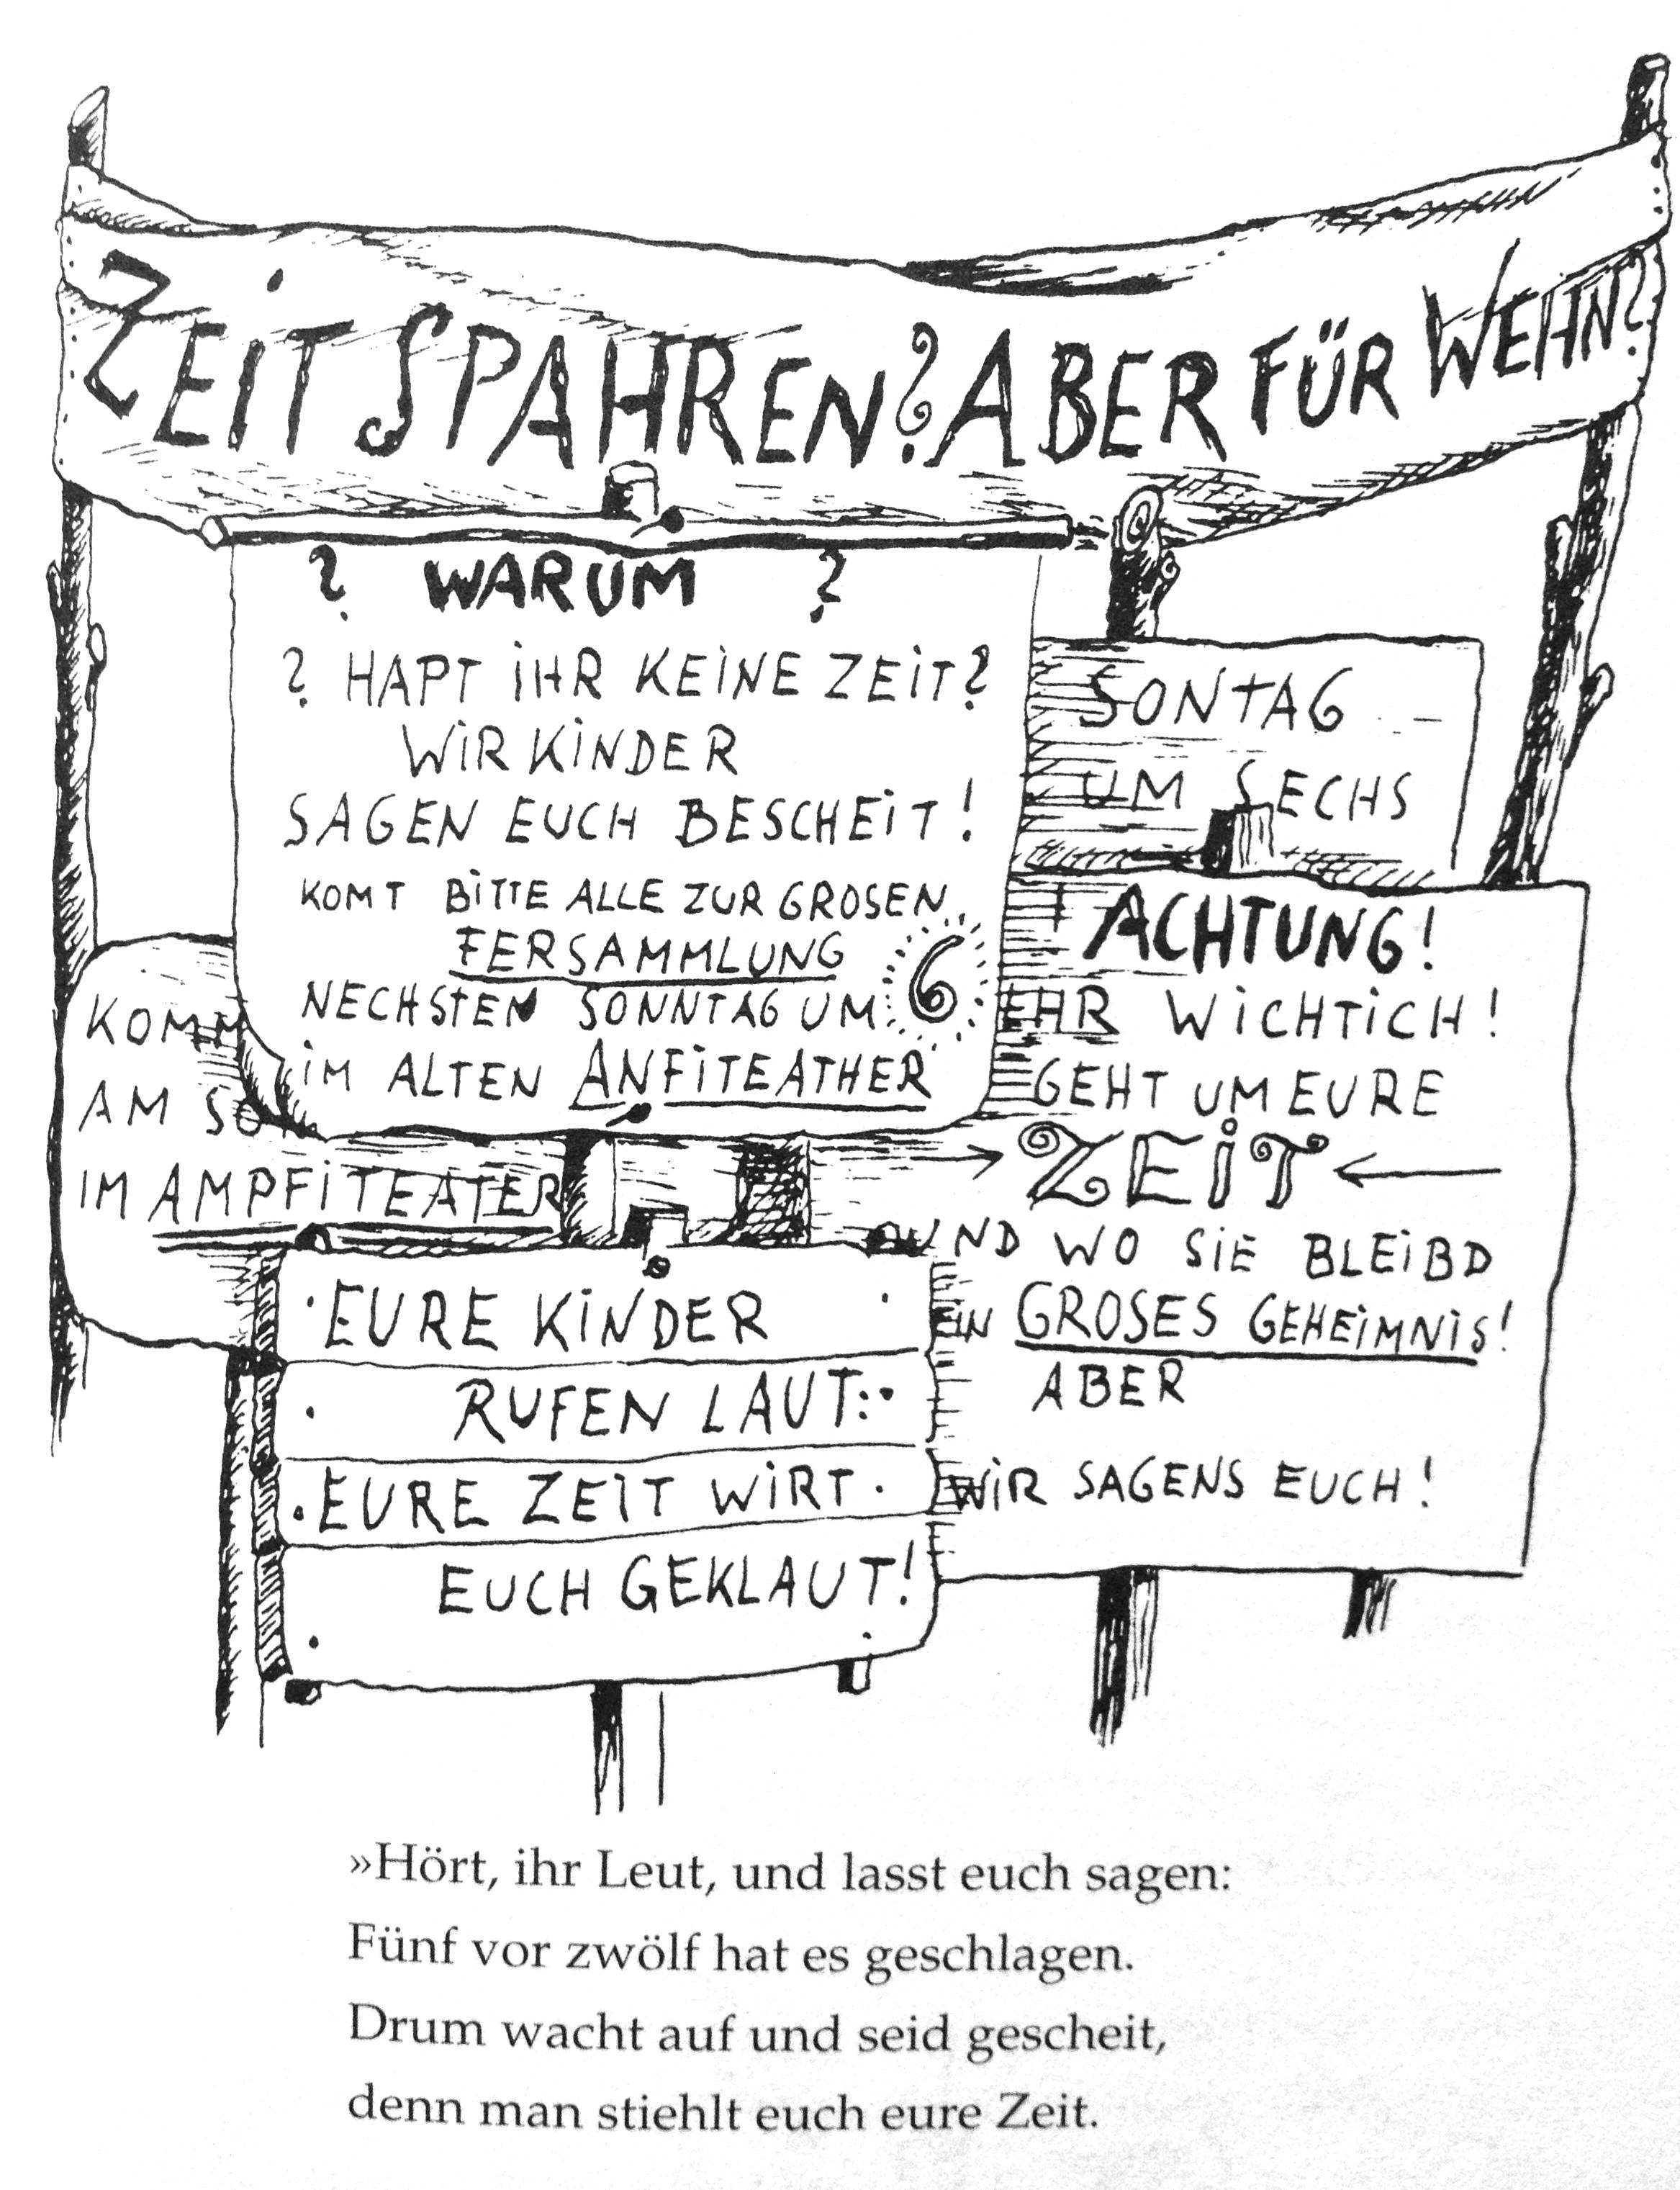 ZEIT SPAHREN? ABER FÜR WEHN?
? WARUM ?
? HAPT IHR KEINE ZEIT?
WIR KINDER
SAGEN EUCH BESCHEIT!
KOMT BITTE ALLE ZUR GROSEN
FERSAMMLUNG
NECHSTEN SONNTAG UM 6
IM ALTEN ANFITEATHER
SONTAG
UM SECHS
! ACHTUNG!
EHR WICHTICH!
GEHT UM EURE
→ ZEIT ←
UND WO SIE BLEIBD
EIN GROSES GEHEIMNIS!
ABER
WIR SAGENS EUCH!
KOMM
AM SO
IM AMPFITEATER
EURE KINDER
RUFEN LAUT:
EURE ZEIT WIRT
EUCH GEKLAUT!
»Hört, ihr Leut, und lasst euch sagen:
Fünf vor zwölf hat es geschlagen.
Drum wacht auf und seid gescheit,
denn man stiehlt euch eure Zeit.